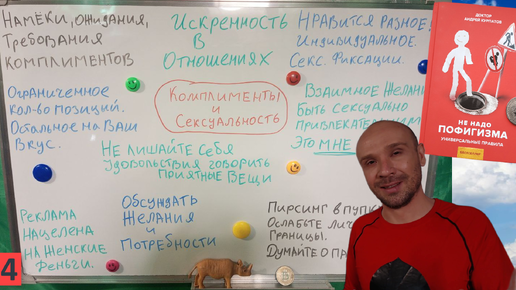 Намёки, ожидания,
Требования
комплиментов
Искренность
в
отношениях
Нравится разное!
Индивидуальное.
Секс. Фиксации.
Ограниченное
кол-во позиций.
Остальное на Ваш
вкус.
Комплименты
и
Сексуальность
Взаимное желание
быть сексуально
привлекательным
Это мне
Не лишайте себя
удовольствия говорить
приятные вещи
Реклама
нацелена
на женские
деньги.
Обсуждать
желания
и
потребности
Пирсинг в пупк
Ослабьте
границы.
Думайте о
4
ДОКТОР
АНДРЕЙ КУРПАТОВ
НЕ НАДО
ПОФИГИЗМА
УНИВЕРСАЛЬНЫЕ ПРАВИЛА